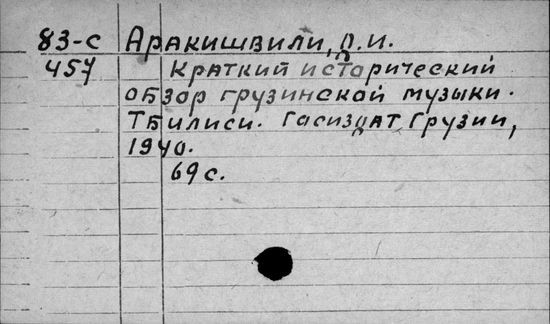 83-с Аракишвили, Д.И.
457 Краткий исторический
обзор грузинской музыки.
Тбилиси. Гасиздат Грузии,
1940.
69 с.